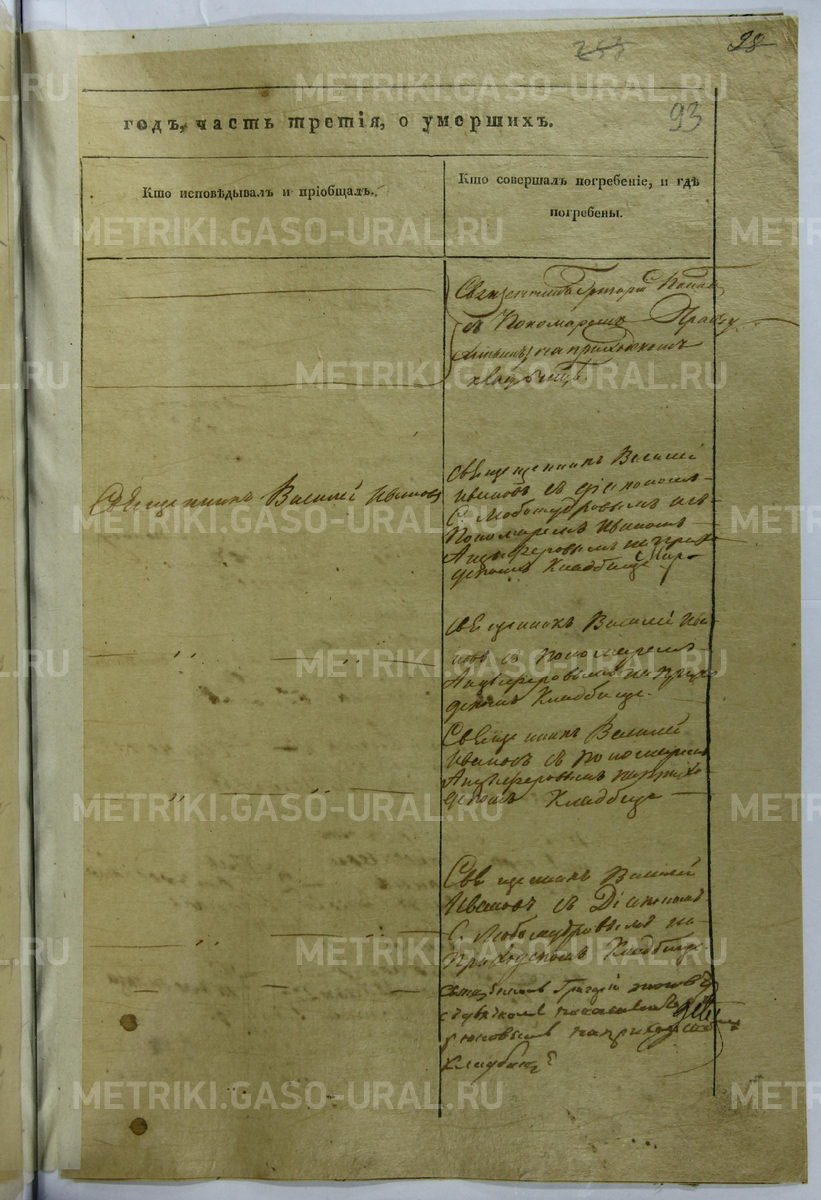 28
93
годъ, часть третія, о умершихъ.
Кто исповѣдывалъ и пріобщалъ.
Кто совершалъ погребеніе, и гдѣ
погребены.
Священникъ Григорій
съ Пономаремъ
на приходскомъ
кладбищѣ
Священникъ Василій Ивановъ
Священникъ Василій
Ивановъ съ діакономъ
С. Любомудровымъ и съ
Пономаремъ Иваномъ
Анцыферовымъ на прихо-
дскомъ Кладбище
Священникъ Василій Ива-
новъ съ пономаремъ
Анцыферовымъ на прихо-
дскомъ Кладбище.
Священникъ Василій
Ивановъ съ пономаремъ
Анцыферовымъ на прихо-
дскомъ Кладбище
Священникъ Василій
Ивановъ съ Діакономъ
С. Любомудровымъ на
Приходскомъ Кладбище
Священникъ Григорій
на приходскомъ
кладбищѣ
METRIKI.GASO-URAL.RU